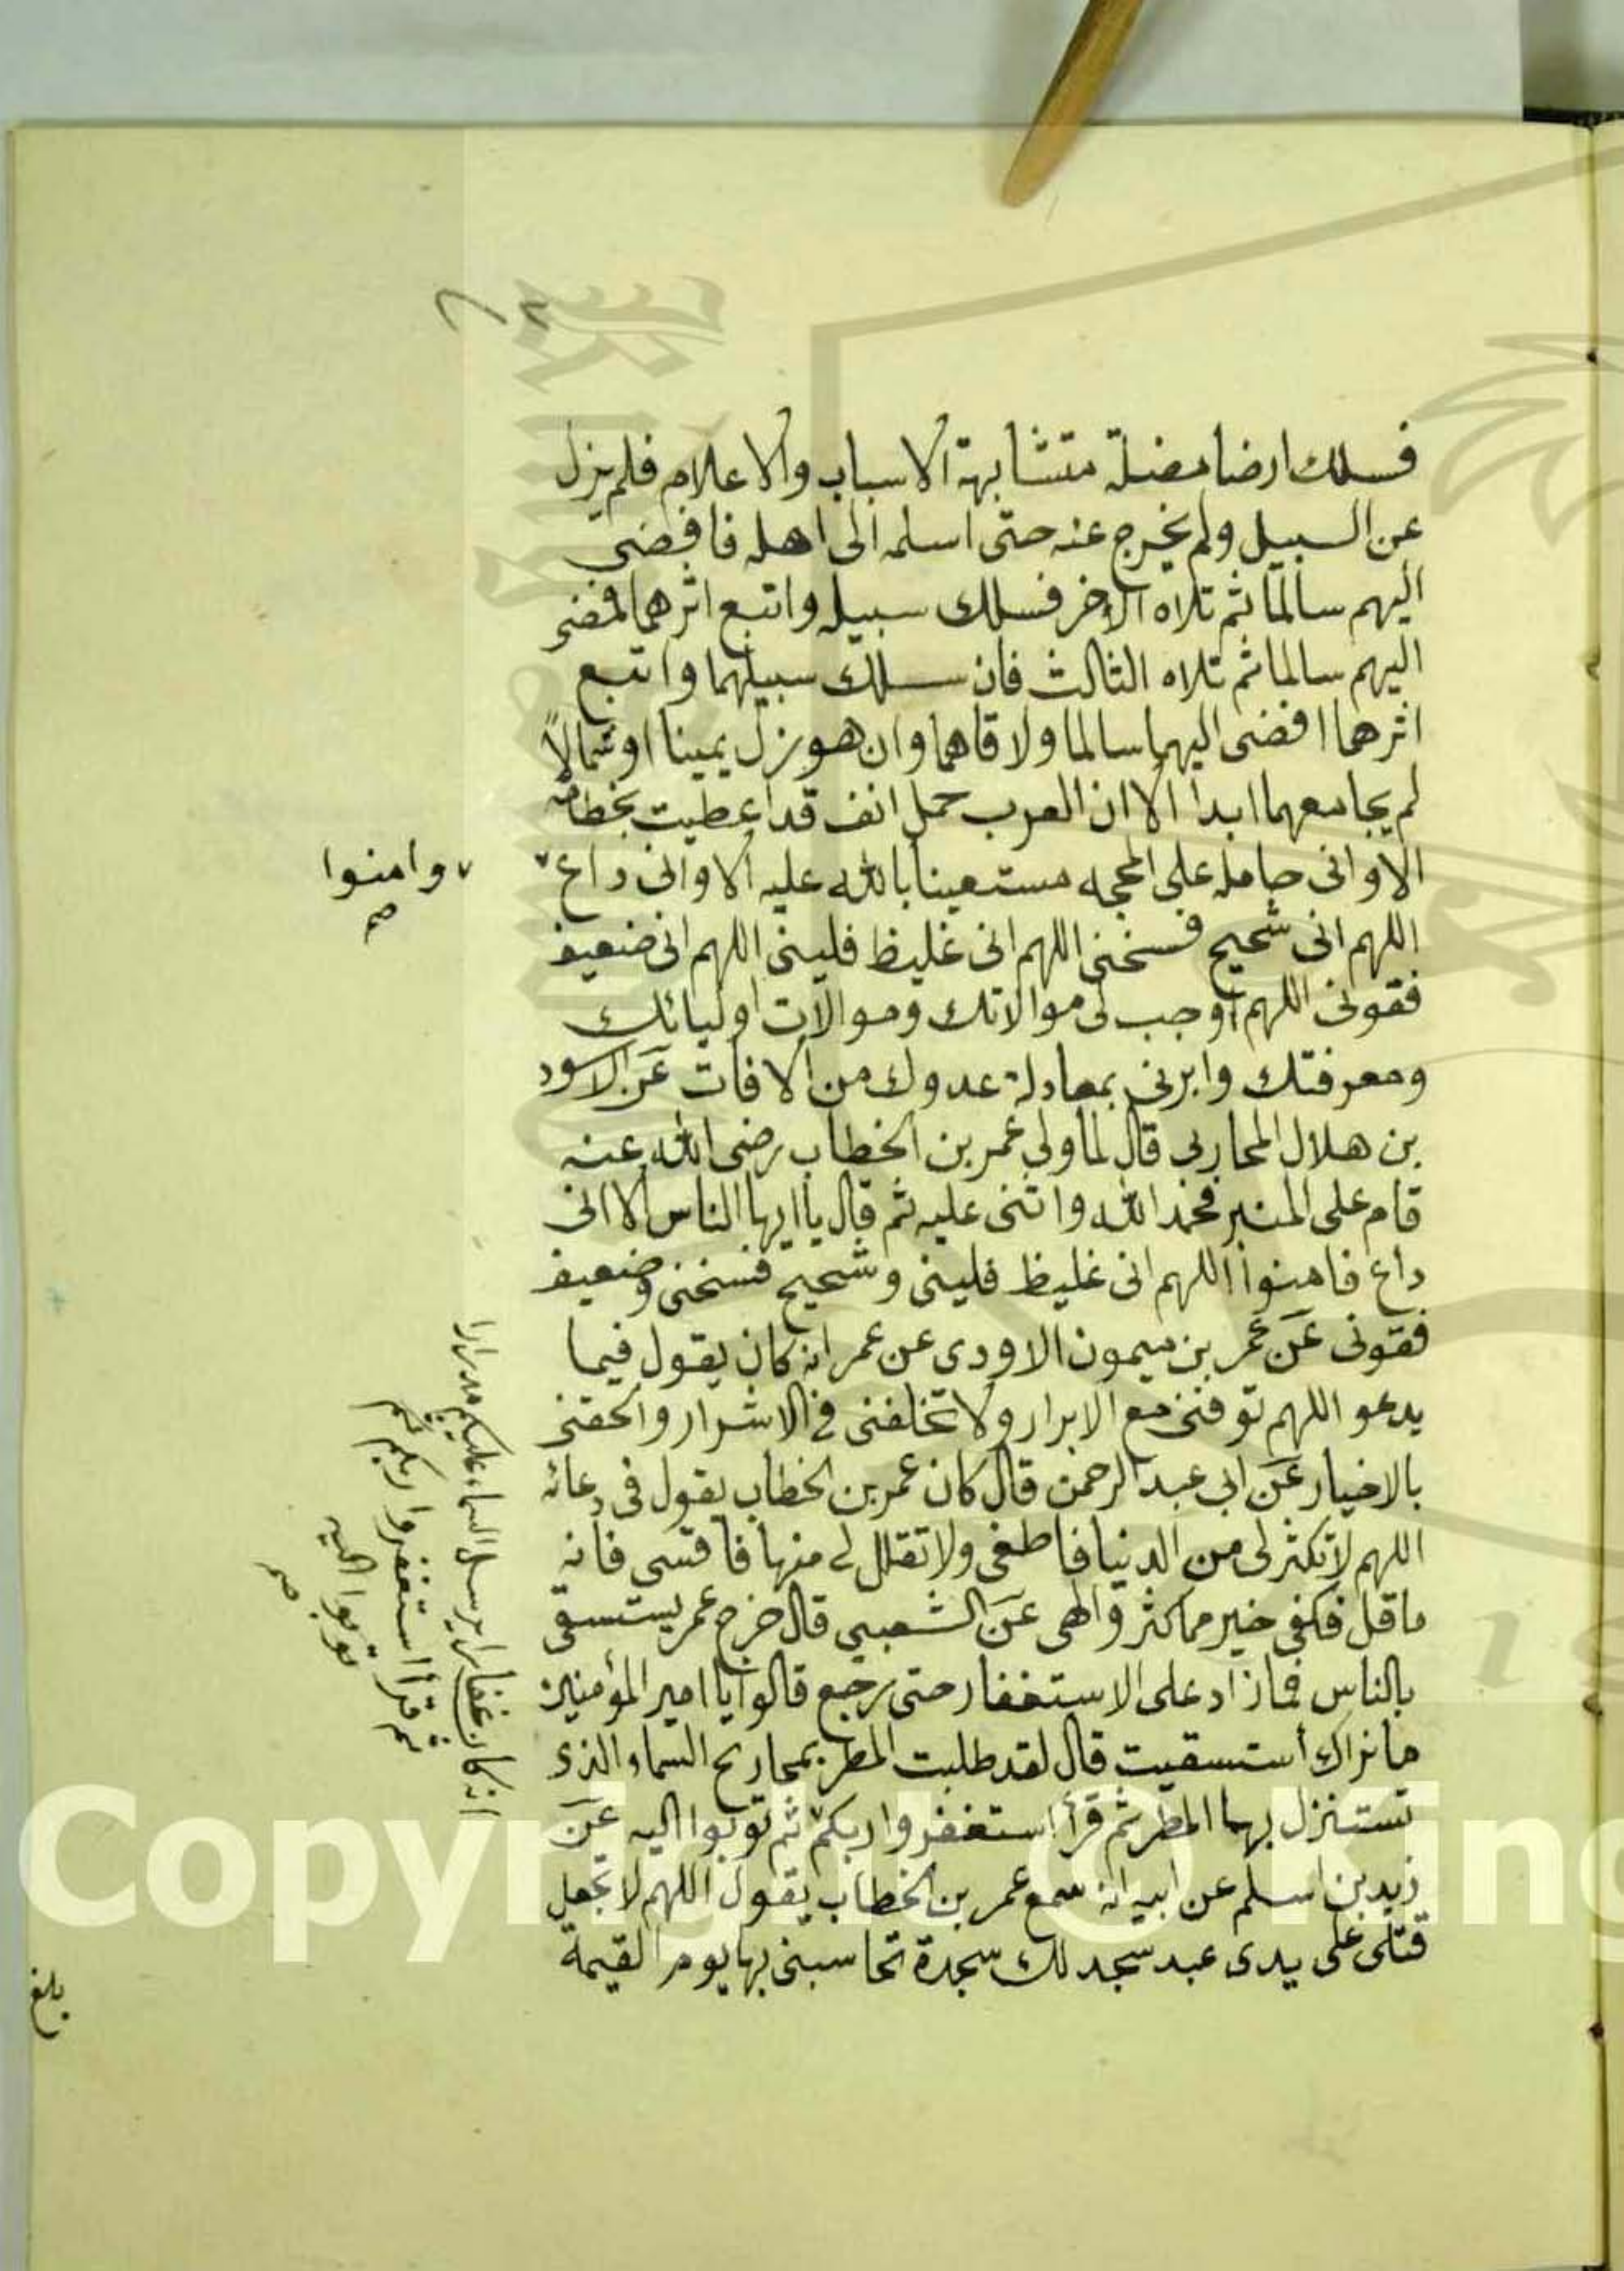 فسلك ارضا مضلة متشابهة الاسباب والاعلام فلم يزل
عن السبيل ولم يخرج عنه حتى اسلمه الى اهله فافضى
اليهم سالما ثم تلاه الاخر فسلك سبيله واتبع اثرهما فافضى
اليهم سالما ثم تلاه الثالث فان سلك سبيلهما واتبع
اثرهما افضى اليهما سالما ولاقاهما وان هو زل يمينا او شمالاً
لم يجامعهما ابدا الا ان العرب جمل انف قد اعطيت بخطامه
الا وانى حامله على المحجه مستعينا بالله عليه الا وانى داع
وامنوا
صح
اللهم انى شحيح فسخنى اللهم انى غليظ فلينى اللهم انى ضعيف
فقونى اللهم اوجب لى موالاتك وموالات اوليائك
ومعرفتك وابرنى بمعادلة عدوك من الافات عَن الاسود
بن هلال المحاربى قال لما ولى عمر بن الخطاب رضى الله عنه
قام على المنبر فحمد الله واثنى عليه ثم قال يا ايها الناس الا انى
داع فامنوا اللهم انى غليظ فلينى وشحيح فسخنى وضعيف
فقونى عَن عمر بن ميمون الاودى عن عمر انه كان يقول فيما
يدعو اللهم توفنى مع الابرار ولا تخلفنى فى الاشرار والحقنى
بالاخيار عَن ابى عبد الرحمن قال كان عمر بن الخطاب يقول فى دعائه
اللهم لا تكثر لى من الدنيا فاطغى ولا تقلل لى منها فاقسى فانه
ما قل فكفى خير مما كثر والهى عَن الشعبى قال خرج عمر يستسقى
بالناس فما زاد على الاستغفار حتى رجع قالوا يا امير المؤمنين
ما نراك أستسقيت قال لقد طلبت المطر بمجاديح السماء الذى
تستنزل بها المطر ثم قرأ استغفروا ربكم ثم توبوا اليه عَن
زيد بن اسلم عن ابيه انه سمع عمر بن الخطاب يقول اللهم لا تجعل
قتلى على يدى عبد سجد لك سجدة تحاسبنى بها يوم القيمة
انه كان غفارا يرسل السماء عليكم مدرارا
ثم قرأ استغفروا ربكم ثم
توبوا اليه
صح
بلغ
Copyright © King